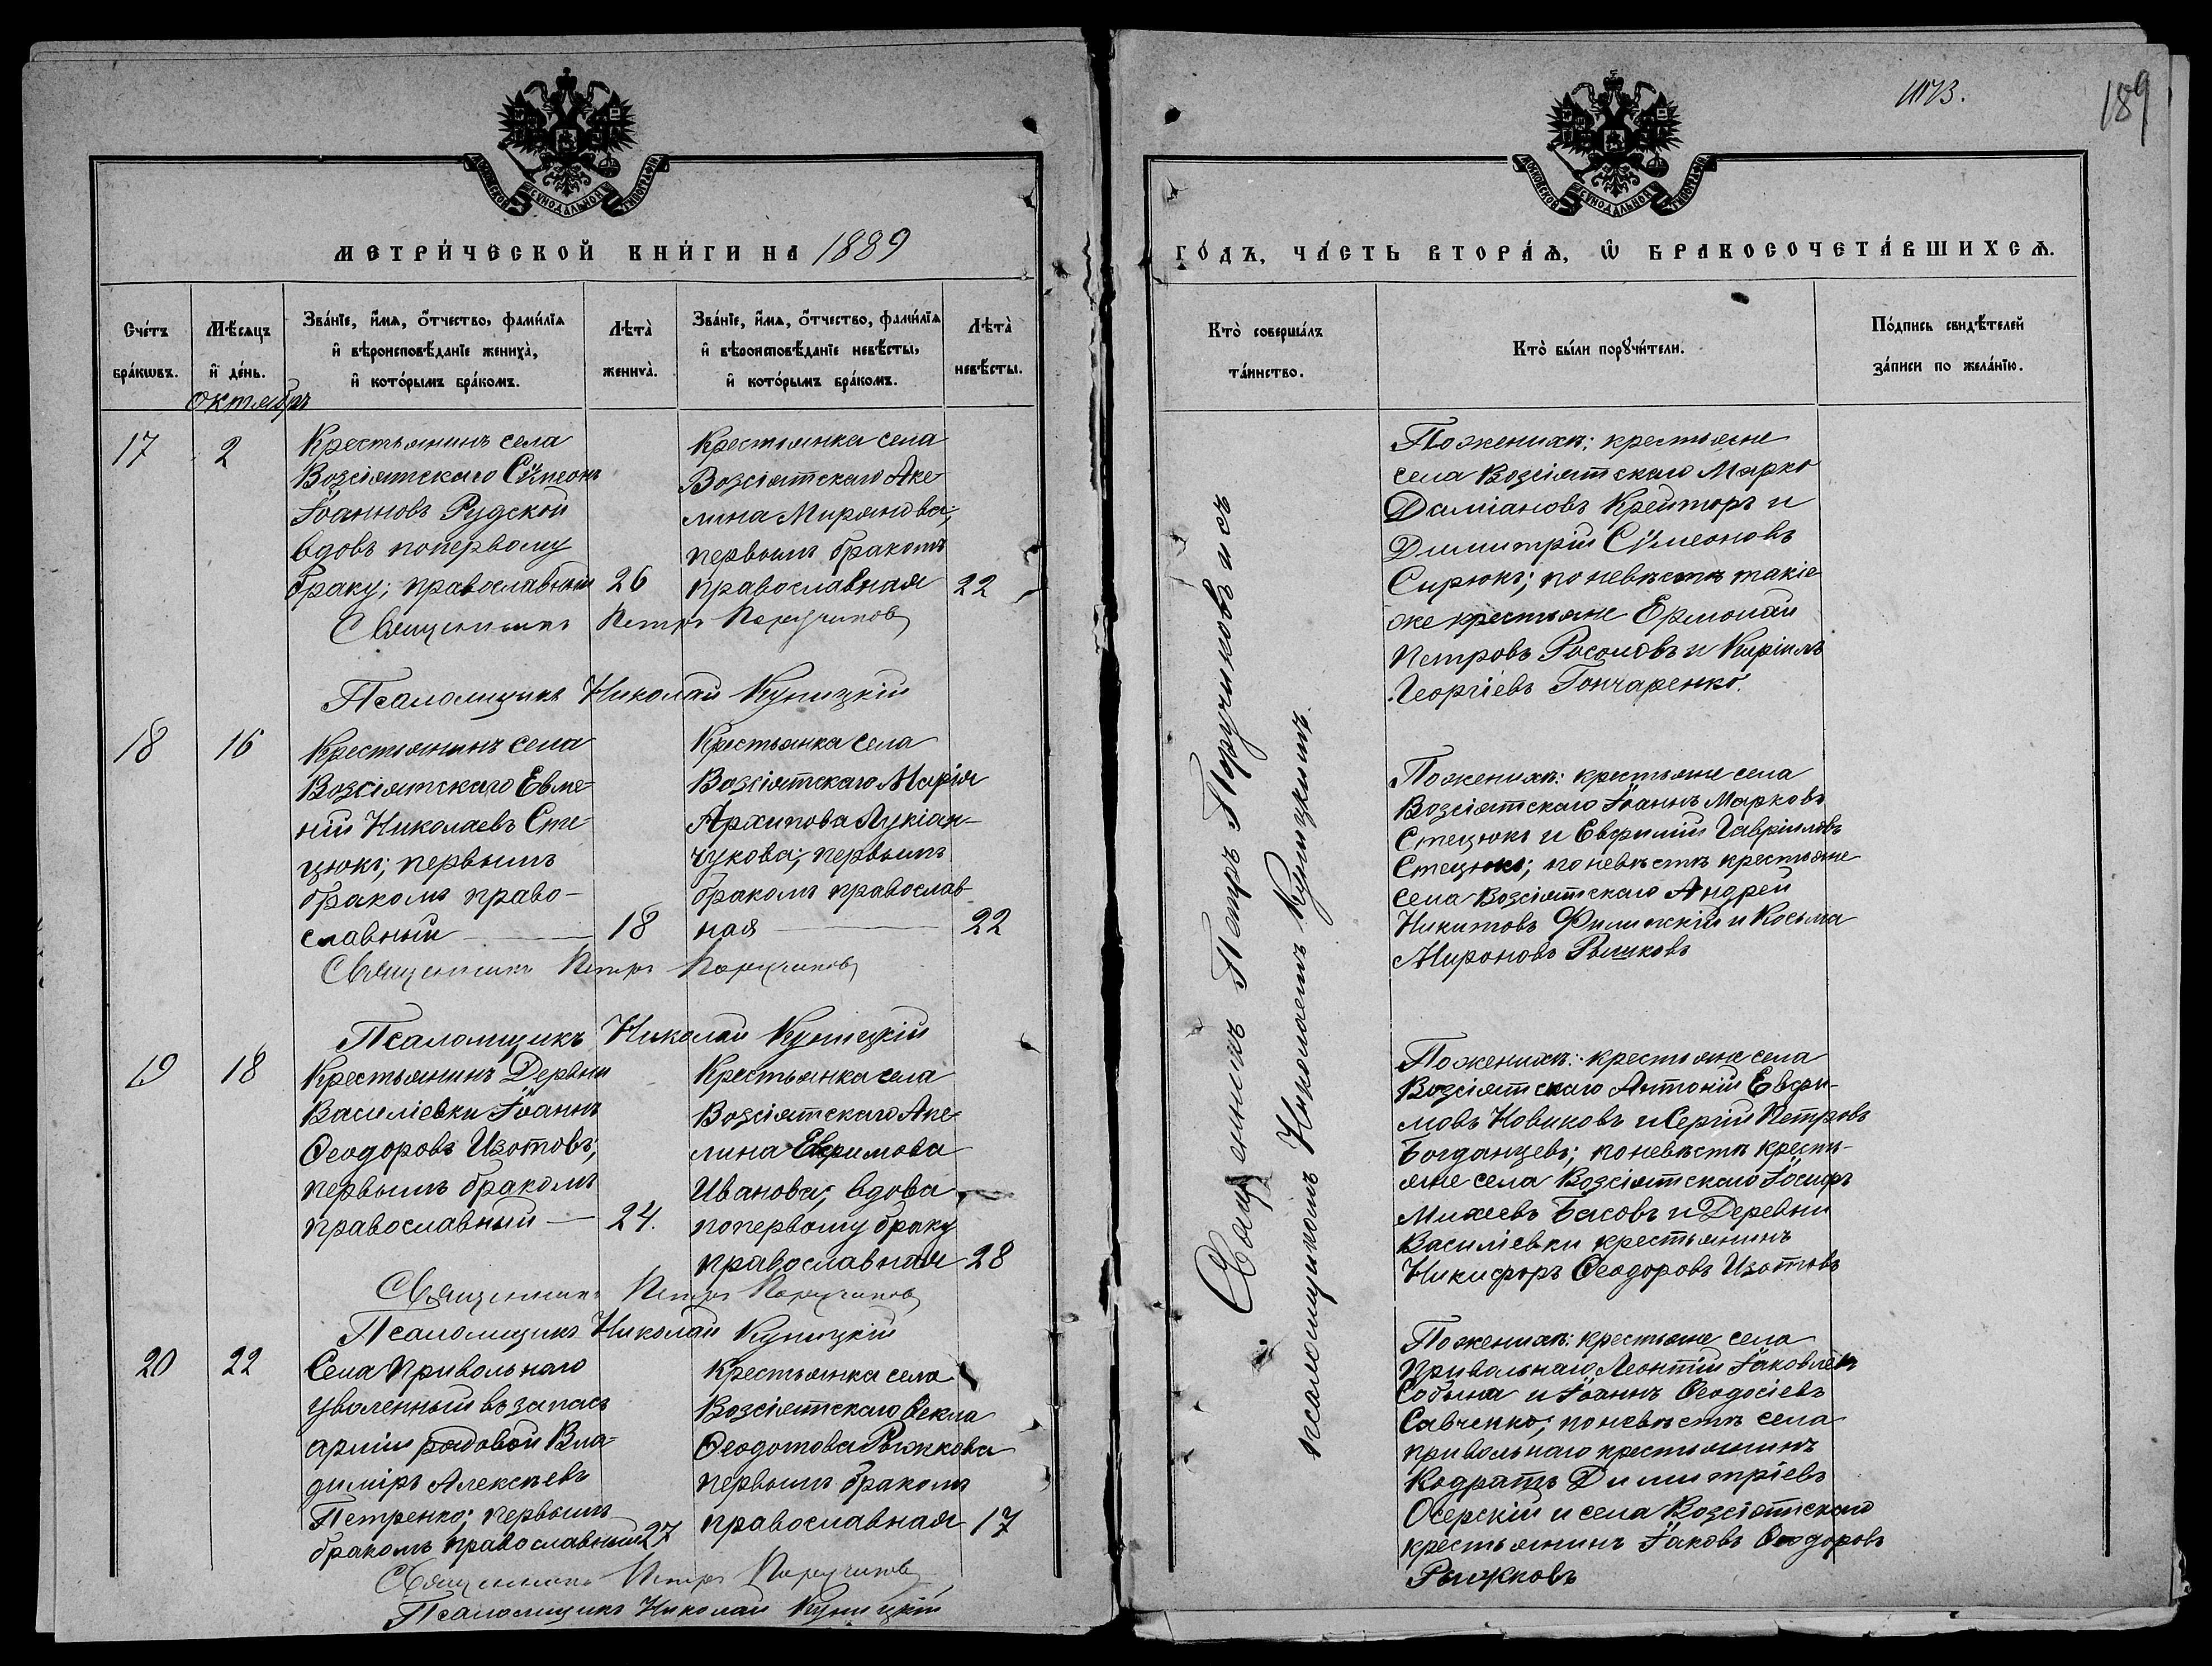 МОСКОВСКОЙ СѴНОДАЛЬНОЙ ТИПОГРАФІИ
МЕТРИ́ЧЕСКОЙ КНИ́ГИ НА 1889
Сче́тъ бра́кѡвъ.
Мѣ́сяцъ и҆ де́нь.
Зва́нїе, и҆́мѧ, ѻ҆́тчество, фами́лїѧ и҆ вѣроисповѣ́данїе жениха̀, и҆ кото́рымъ бра́комъ.
Лѣта̀ жениха̀.
Зва́нїе, и҆́мѧ, ѻ҆́тчество, фами́лїѧ и҆ вѣроисповѣ́данїе невѣ́сты, и҆ кото́рымъ бра́комъ.
Лѣта̀ невѣ́сты.
октябрь
17
2
Крестьянинъ села
Возсіятскаго Сѵмеонъ
Іоанновъ Рудской
вдовъ поперваму
браку; православный
26
Крестьянка села
Возсіятскаго Аке-
лина Миранова;
первымъ бракомъ
православная
22
Священникъ Петръ Поручиковъ
Псаломщикъ Николай Куницкій
18
16
Крестьянинъ села
Возсіятскаго Евме-
ній Николаевъ Сте-
цюкъ; первымъ
бракомъ право-
славный
18
Крестьянка села
Возсіятскаго Марія
Архипова Лукіан-
чукова; первымъ
бракомъ православ-
ная
22
Священникъ Петръ Поручиковъ
Псаломщикъ Николай Куницкій
19
18
Крестьянинъ Дервни
Василіевки Іоаннъ
Ѳеодоровъ Изотовъ;
первымъ бракомъ
православный
24.
Крестьянка села
Возсіятскаго Аке-
лина Евфимова
Иванова; вдова
поперваму браку
православная
28
Священникъ Петръ Поручиковъ
Псаломщикъ Николай Куницкій
20
22
Села Привольнаго
уволенный въ запасъ
арміи рядовой Вла-
диміръ Алексѣевъ
Петренко; первымъ
бракомъ православный
27
Крестьянка села
Возсіятскаго Ѳекла
Ѳеодотова Рыжкова
первымъ бракомъ
православная
17
Священникъ Петръ Поручиковъ
Псаломщикъ Николай Куницкій
189
МОСКОВСКОЙ СѴНОДАЛЬНОЙ ТИПОГРАФІИ
ГО́ДЪ, ЧА́СТЬ ВТОРА́Ѧ, Ѡ҆ БРАКОСОЧЕТА́ВШИХСѦ.
Кто̀ соверша́лъ та́инство.
Кто̀ бы́ли порꙋчи́тели.
По́дпись свидѣ́телей за́писи по жела́нїю.
Священникъ Петръ Поручиковъ исъ
псаломщикомъ Николаемъ Куницкимъ.
По женихѣ: крестьяне
села Возсіятскаго Марко
Даміановъ Крейторъ и
Димитрій Сѵмеоновъ
Сирюкъ; по невѣстѣ такіе
же крестьяне Ермолай
Петровъ Росоловъ и Кириллъ
Георгіевъ Гончаренко.
По женихѣ: крестьяне села
Возсіятскаго Іоаннъ Марковъ
Стецюкъ и Евфимій Гавріиловъ
Стецюкъ; по невѣстѣ крестьяне
села Возсіятскаго Андрей
Никитовъ Филипскій и Косьма
Мироновъ Рышковъ
По женихѣ: крестьяне села
Возсіятскаго Антоній Евфи-
мовъ Новиковъ и Сергій Петровъ
Богданцевъ; по невѣстѣ кресть-
яне села Возсіятскаго Іосифъ
Михеевъ Басовъ и Деревни
Василіевки крестьянинъ
Никифоръ Ѳеодоровъ Изотовъ
По женихѣ: крестьяне села
Привольнаго Леонтій Іаковлевъ
Собына и Іоаннъ Ѳеодосіевъ
Савченко; по невѣстѣ села
привольнаго крестьянинъ
Кодратъ Димитріевъ
Осерскій и села Возсіятскаго
крестьянинъ Іаковъ Ѳеодоровъ
Рыжковъ